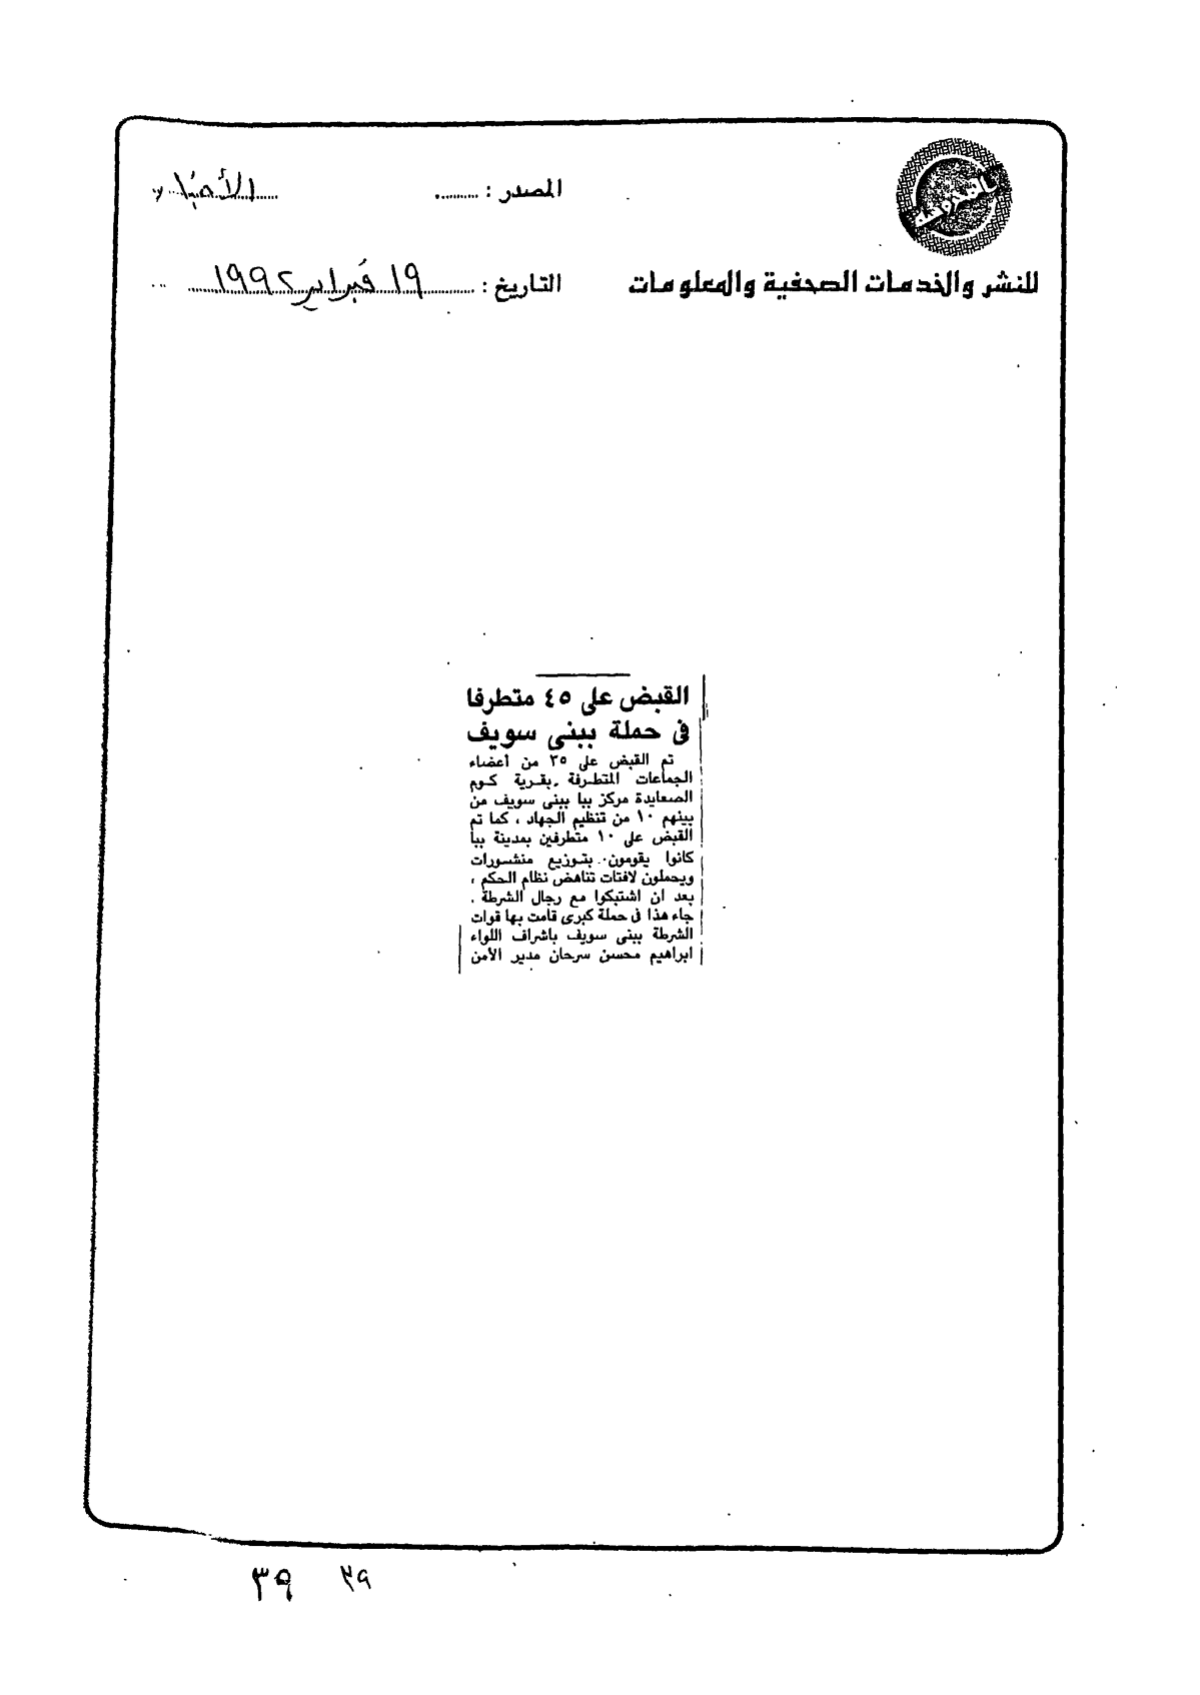 المصدر : ......... الأخبار
للنشر والخدمات الصحفية والمعلومات
التاريخ : ١٩ فبراير ١٩٩٢
القبض على ٤٥ متطرفا
فى حملة ببنى سويف
تم القبض على ٣٥ من أعضاء
الجماعات المتطرفة بقرية كوم
الصعايدة مركز ببا ببنى سويف من
بينهم ١٠ من تنظيم الجهاد ، كما تم
القبض على ١٠ متطرفين بمدينة ببا
كانوا يقومون بتوزيع منشورات
ويحملون لافتات تناهض نظام الحكم ،
بعد ان اشتبكوا مع رجال الشرطة .
جاء هذا فى حملة كبرى قامت بها قوات
الشرطة ببنى سويف باشراف اللواء
ابراهيم محسن سرحان مدير الأمن
٣٩ ٣٩